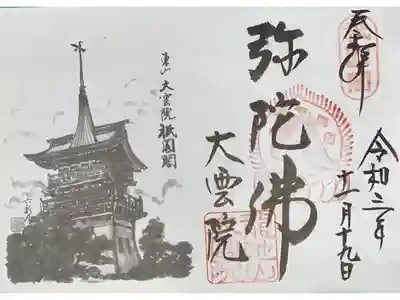 奉拝
令和二年
十一月十九日
弥陀佛
大雲院
東山 大雲院 祇園閣